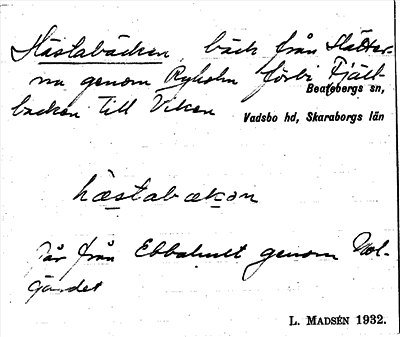 Hästabäcken, bäck från Slätter-
na genom Ryholm förbi Fjäll-
backen till Viken
Beatebergs sn,
Vadsbo hd, Skaraborgs län
hästabækən
går från Ebbahult genom
L. MADSÉN 1932.